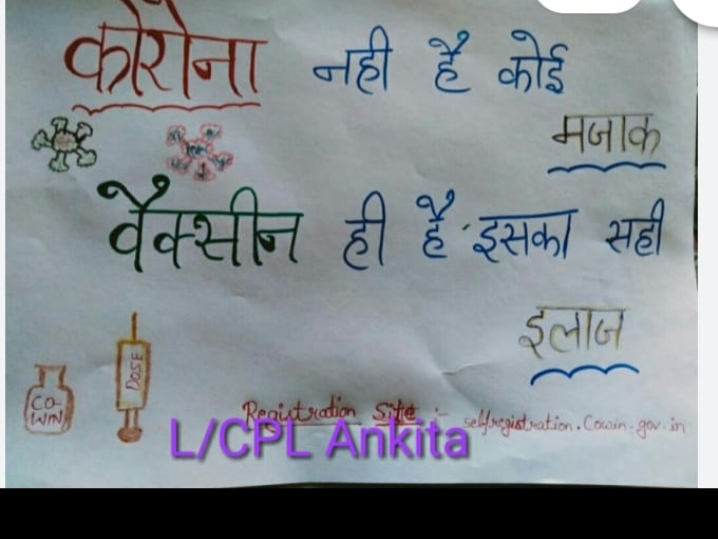 कोरोना नही है कोई
मजाक
वैक्सीन ही है इसका सही
इलाज
CO-
WIN
DOSE
Registration Site :- selfregistration.Cowin.gov.in
L/CPL Ankita